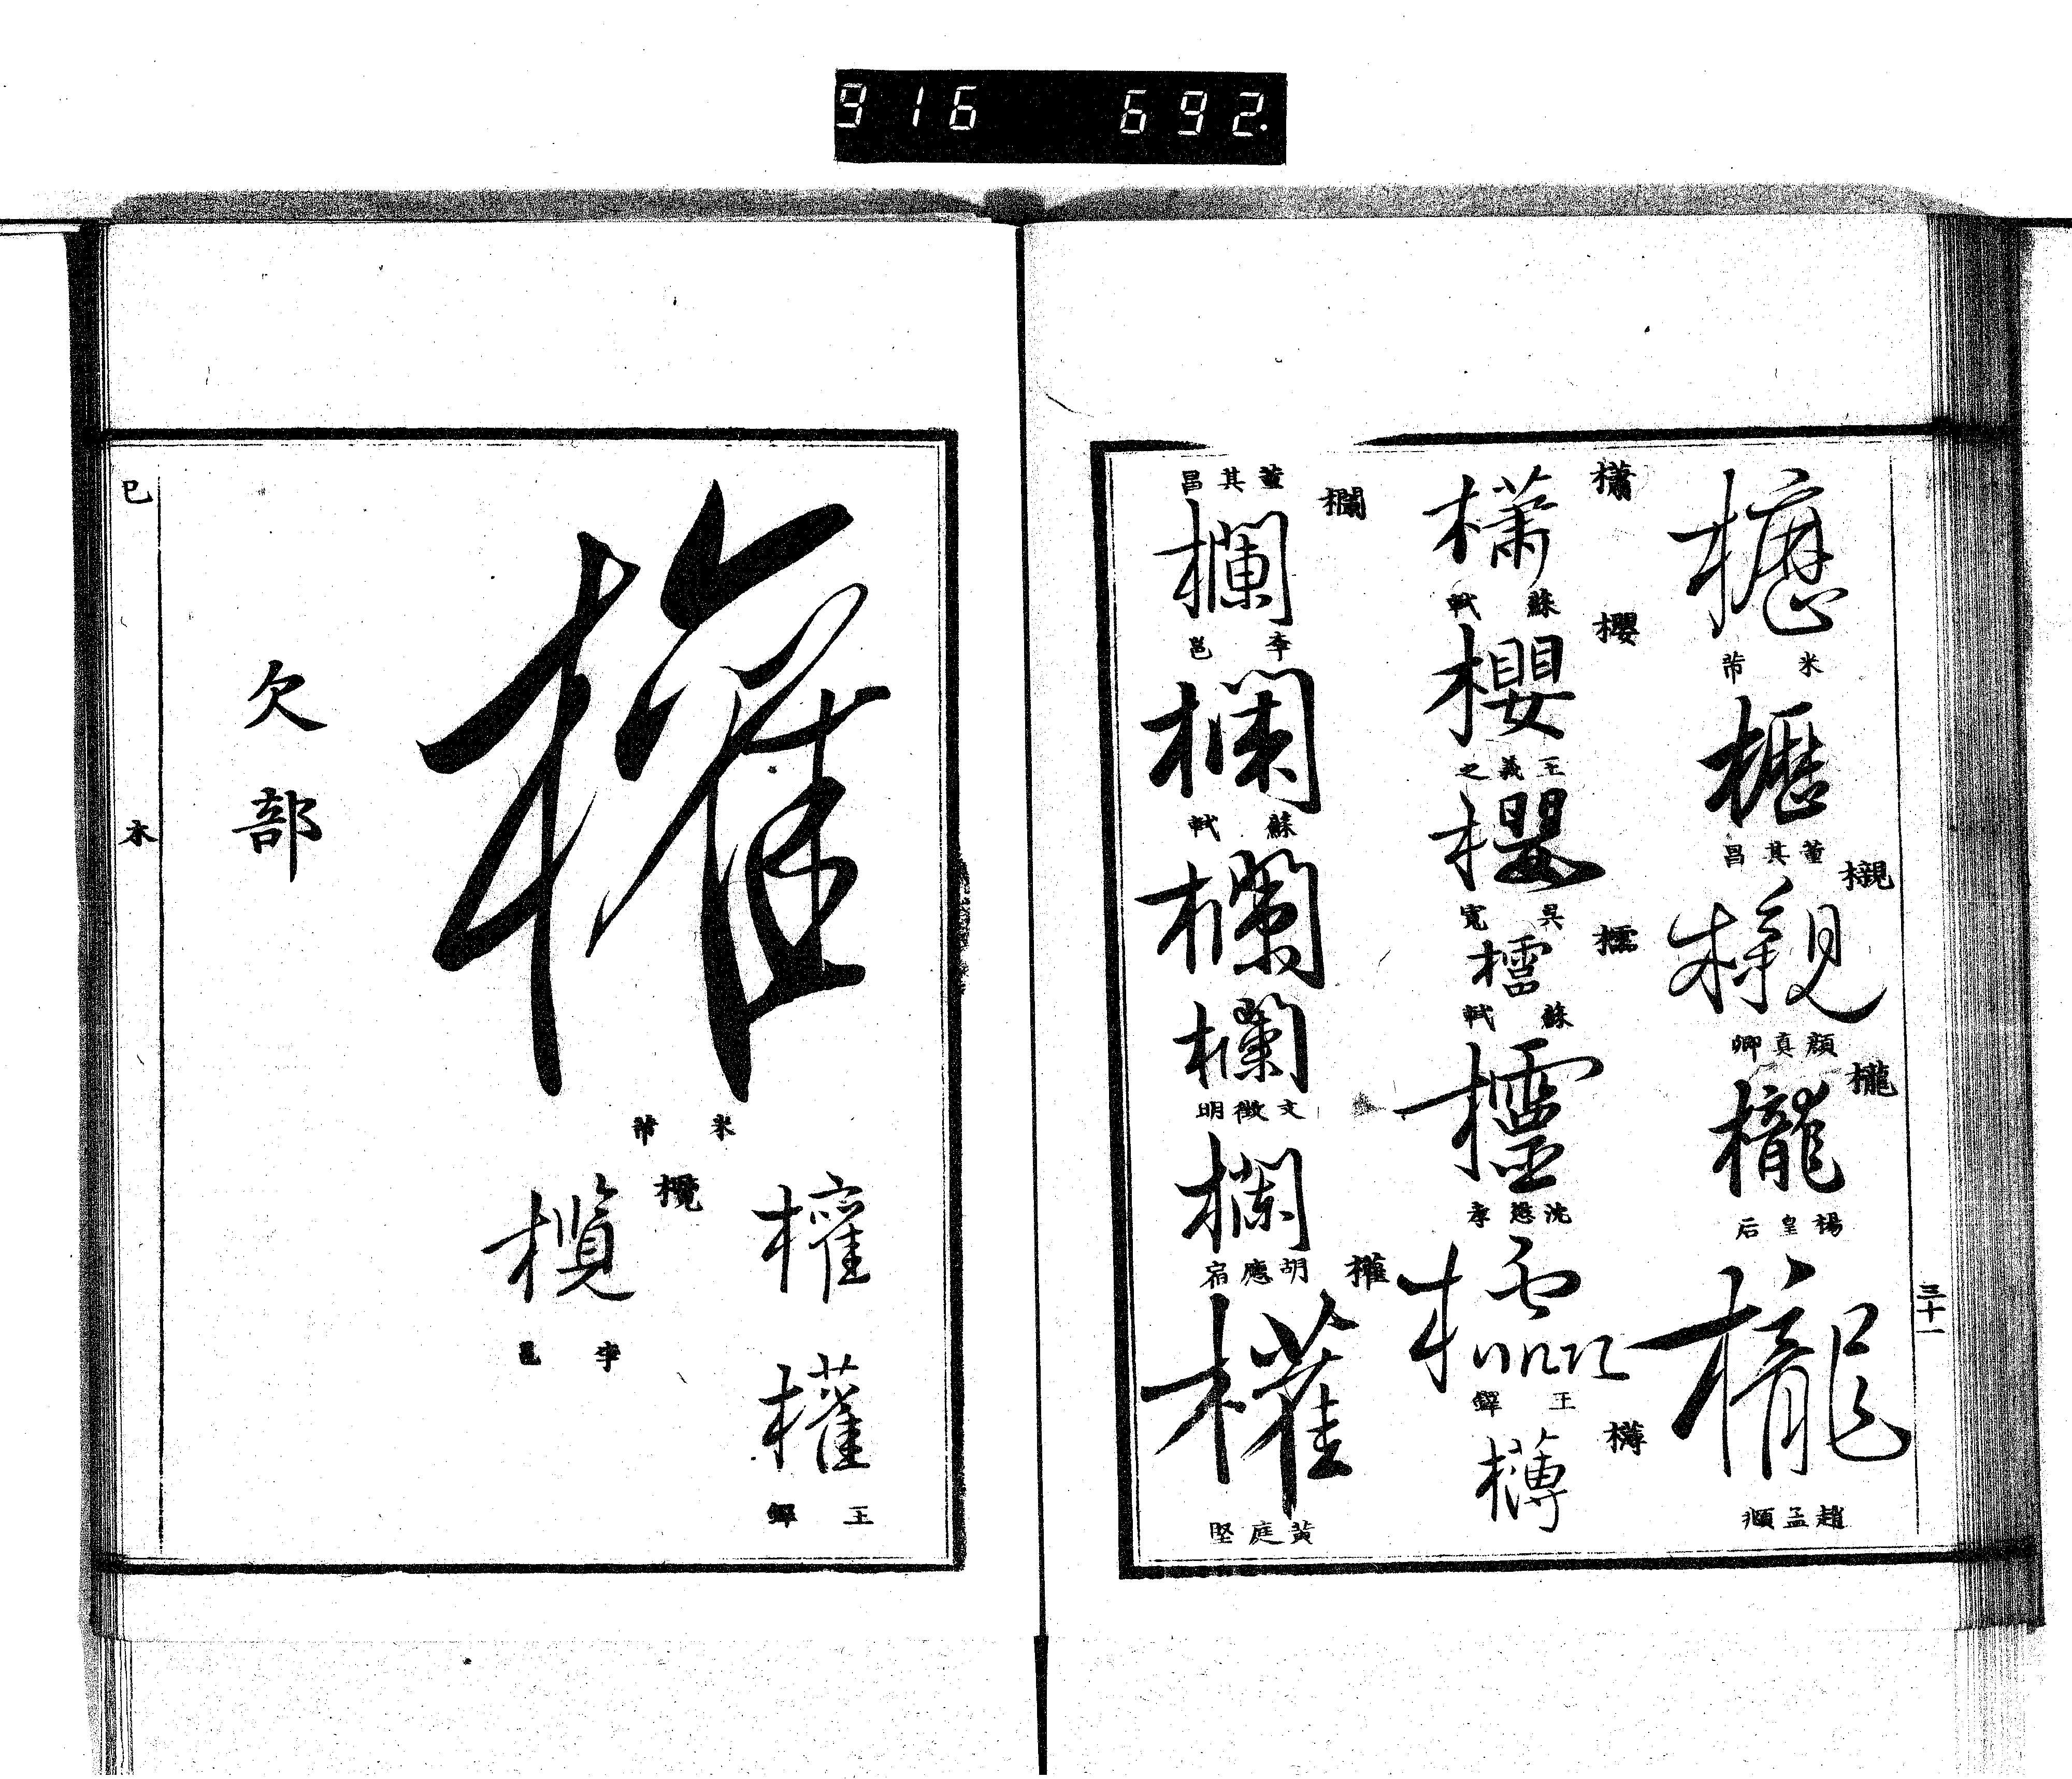 916 692.
三十一
櫪
米芾
櫪
董其昌
櫬
櫬
顏真卿
櫳
櫳
楊皇后
櫳
趙孟頫
櫹
櫹
蘇軾
櫻
櫻
王羲之
櫻
吳寬
櫺
櫺
蘇軾
櫺
沈懋孝
櫺
王鐸
欂
欂
董其昌
欄
欄
李邕
欄
蘇軾
欄
欄
文徵明
欄
胡應宿
權
權
黃庭堅
權
米芾
權
權
王鐸
欖
欖
李邕
欠部
巳
木